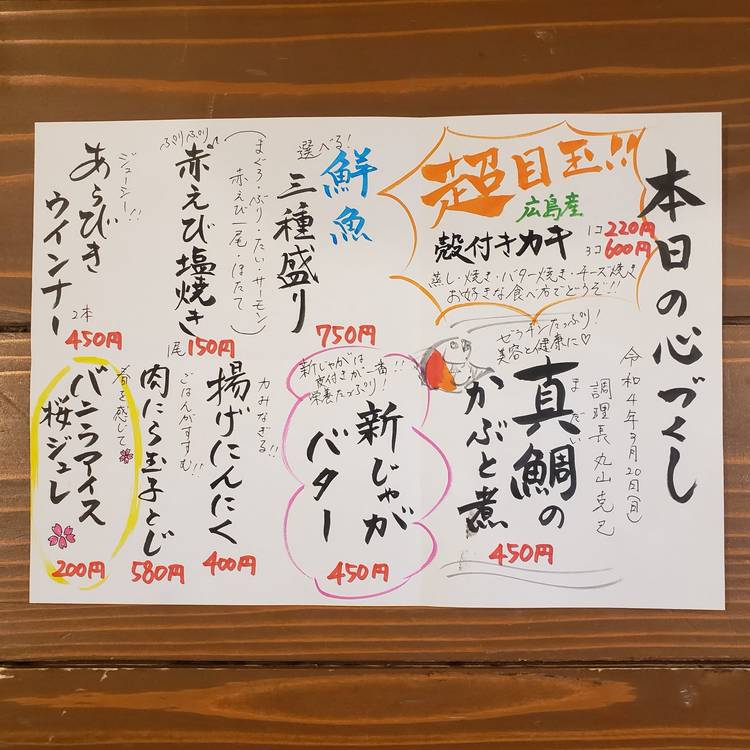 本日の心づくし
令和4年3月20日(日)
調理長 丸山克己
超目玉!!!
広島産
殻付きカキ
1コ220円
3コ600円
蒸し・焼き・バター焼き・チーズ焼き
お好きな食べ方でどうぞ!!
ゼラチンたっぷり!
美容と健康に♡
まだい
真鯛の
かぶと煮
450円
選べる!
鮮魚
三種盛り
(まぐろ・ぶり・たい・サーモン
赤えび一尾・ほたて)
750円
ぷりぷり♪
赤えび塩焼き
1尾150円
ジューシー!!
あらびき
ウインナー
2本
450円
新じゃがは
皮付きが一番!!
栄養たっぷり!
新じゃが
バター
450円
力みなぎる!!
揚げにんにく
400円
ごはんがすすむ!!
肉にら玉子とじ
580円
春を感じて
バニラアイス
桜ジュレ
200円